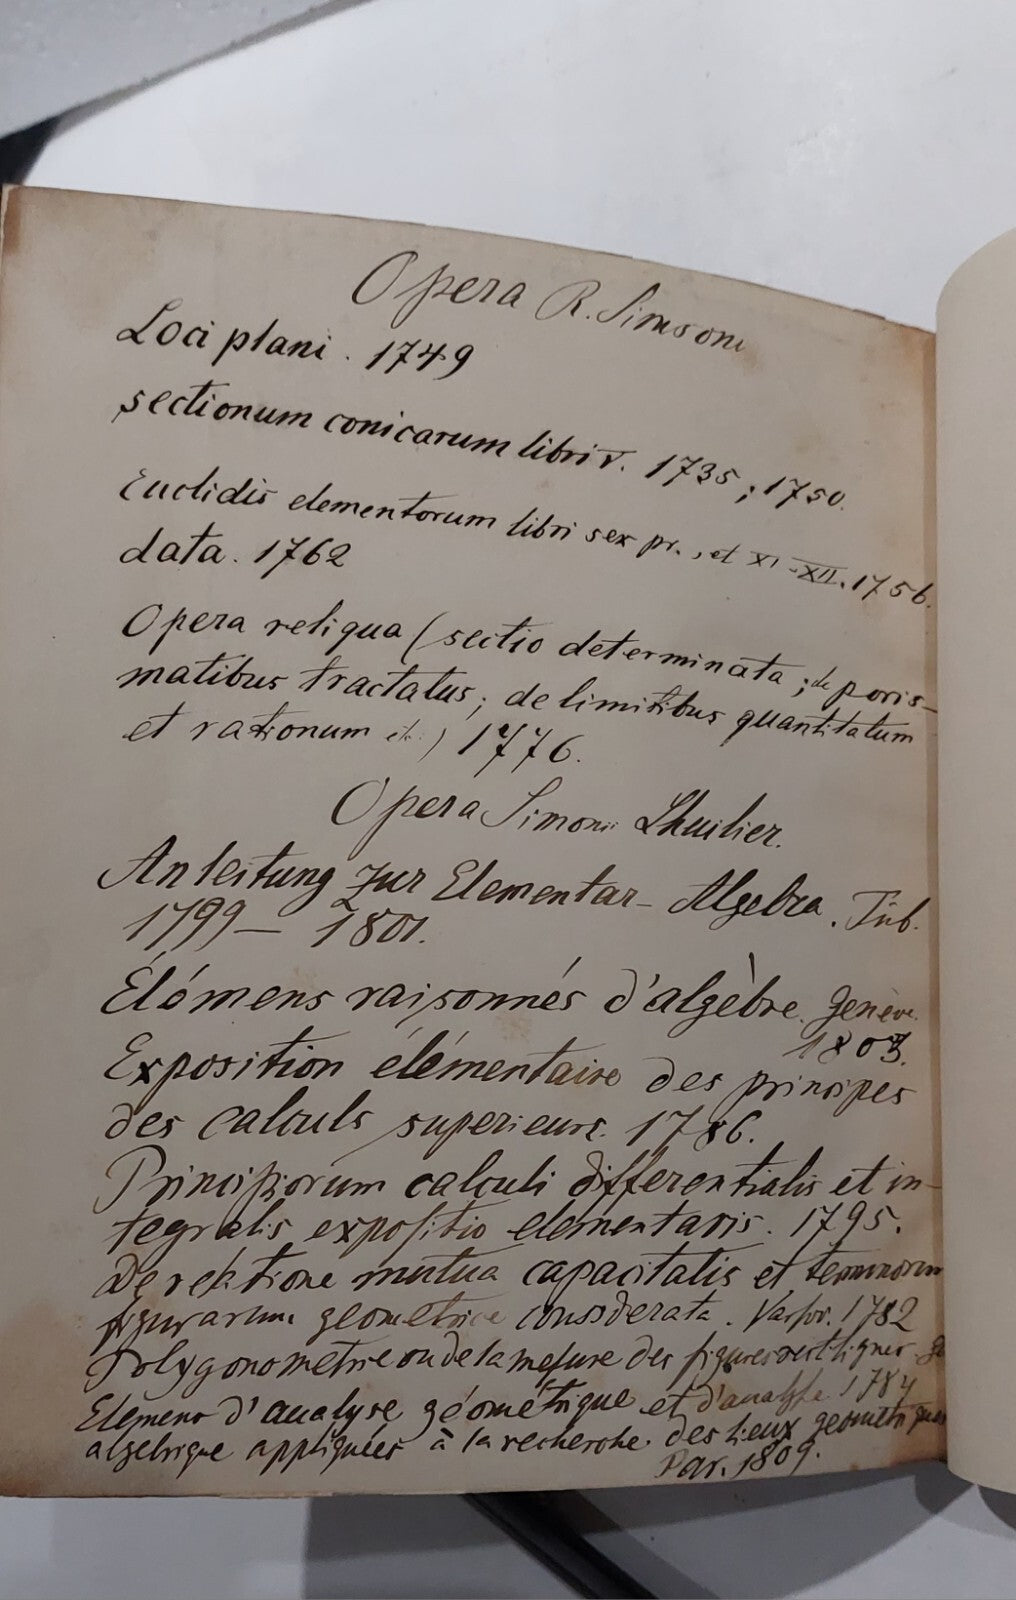 Opera R. Simsoni
Loci plani. 1749
sectionum conicarum libri V. 1735; 1750.
Euclidis elementorum libri sex pr., et XI-XII. 1756.
data. 1762
Opera reliqua (sectio determinata; de poris-
matibus tractatus; de limitibus quantitatum
et rationum etc.) 1776.
Opera Simonis Lhuilier.
Anleitung zur Elementar-Algebra. Tüb.
1799 — 1801.
Élémens raisonnés d'algèbre. Genève.
1803.
Exposition élémentaire des principes
des calculs superieurs. 1786.
Principiorum calculi differentialis et in-
tegralis expositio elementaris. 1795.
De relatione mutua capacitatis et terminorum
figurarum geometrice considerata. Varsov. 1782
Polygonometrie ou de la mesure des figures rectilignes. Ge
1784
Elemens d'analyse géométrique et d'analyse
algebrique appliquées à la recherche des lieux geometriques
Par. 1809.